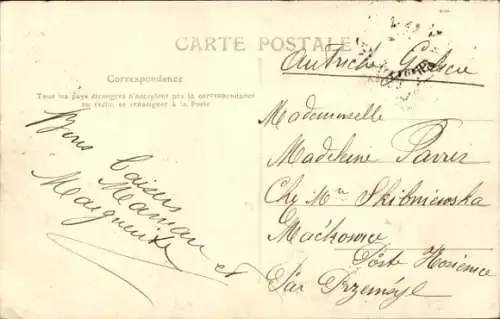 CARTE POSTALE
Autriche Galicie
Correspondance
Tous les pays étrangers n'acceptent pas la correspondance
au recto, se renseigner à la Poste
Bons baisers
Maman et
Marguerite
Mademoiselle
Madeleine
Chez Mme Skibniewska
Maćkowice
Poste
Par Przemyśl